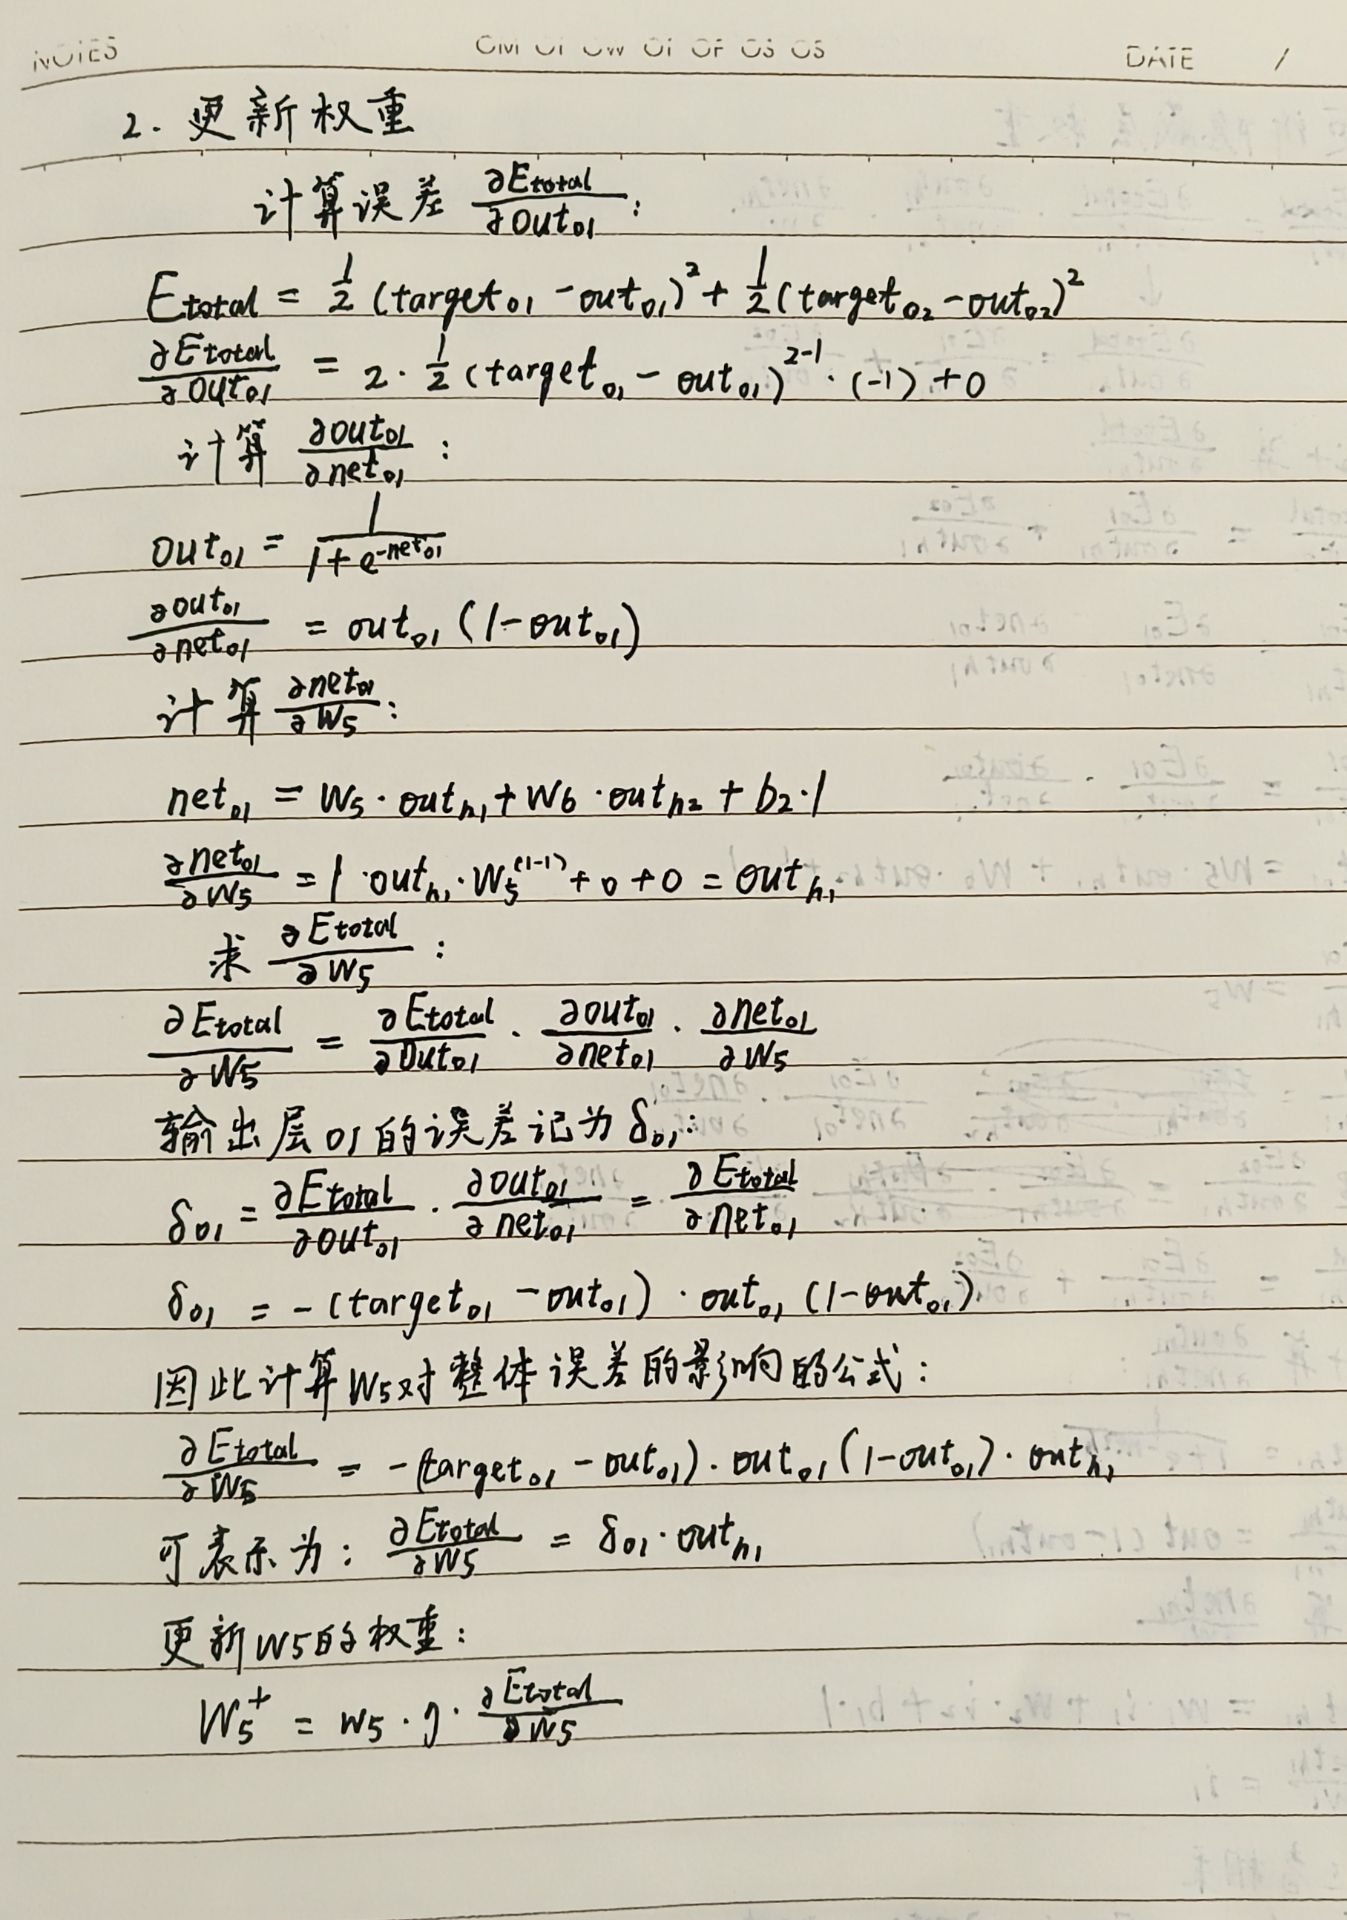 NOTES
DATE /
2. 更新权重
计算误差 ∂Etotal/∂Out₀₁:
Etotal = 1/2 (target₀₁ - out₀₁)² + 1/2 (target₀₂ - out₀₂)²
∂Etotal/∂Out₀₁ = 2 · 1/2 (target₀₁ - out₀₁)²⁻¹ · (-1) + 0
计算 ∂out₀₁/∂net₀₁ :
out₀₁ = 1/(1 + e^(-net₀₁))
∂out₀₁/∂net₀₁ = out₀₁ (1 - out₀₁)
计算 ∂net₀₁/∂W₅ :
net₀₁ = W₅ · out_h₁ + W₆ · out_h₂ + b₂ · 1
∂net₀₁/∂W₅ = 1 · out_h₁ · W₅^(1-1) + 0 + 0 = out_h₁
求 ∂Etotal/∂W₅ :
∂Etotal/∂W₅ = ∂Etotal/∂Out₀₁ · ∂out₀₁/∂net₀₁ · ∂net₀₁/∂W₅
输出层01的误差记为 δ₀₁:
δ₀₁ = ∂Etotal/∂out₀₁ · ∂out₀₁/∂net₀₁ = ∂Etotal/∂net₀₁
δ₀₁ = -(target₀₁ - out₀₁) · out₀₁ (1 - out₀₁)
因此计算W₅对整体误差的影响的公式:
∂Etotal/∂W₅ = -(target₀₁ - out₀₁) · out₀₁ (1 - out₀₁) · out_h₁
可表示为: ∂Etotal/∂W₅ = δ₀₁ · out_h₁
更新W5的权重:
W₅⁺ = W₅ · η · ∂Etotal/∂W₅